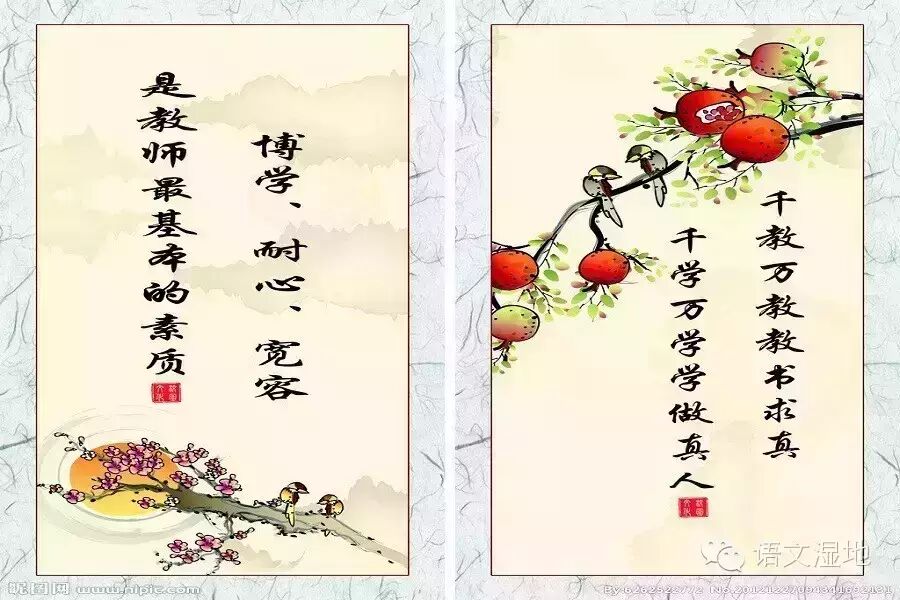 博学、耐心、宽容
是教师最基本的素质
千教万教教书求真
千学万学学做真人
语文湿地
昵图网 www.nipic.com
By:6262522772 No.20121227094341692191